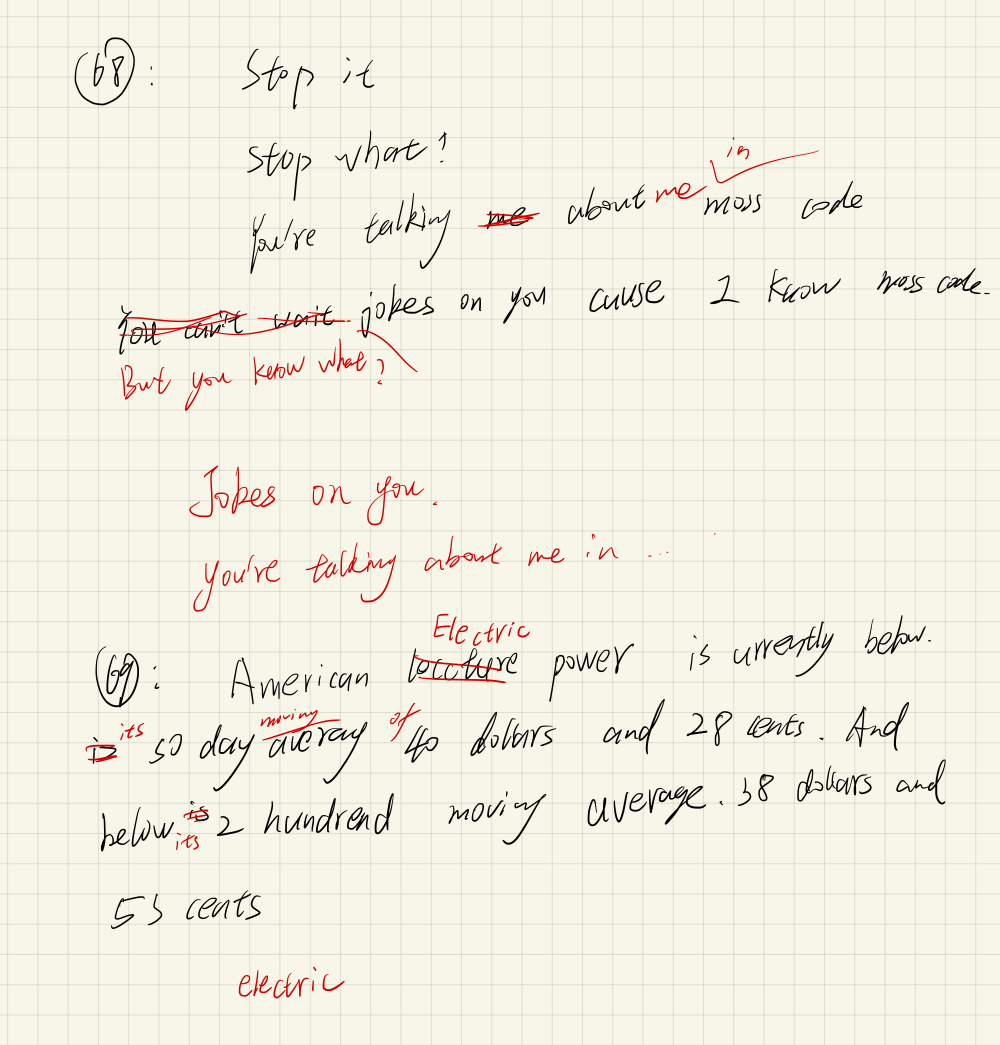 68: Stop it
Stop what?
in
You're talking me about me moss code
You can't wait jokes on you cause I know moss code.
But you know what?
Jokes on you.
You're talking about me in ...
Electric
69: American power is urrently below.
is its 50 day moving averay of 40 dollars and 28 cents. And
below is its 2 hundrend moving average. 38 dollars and
53 cents
electric